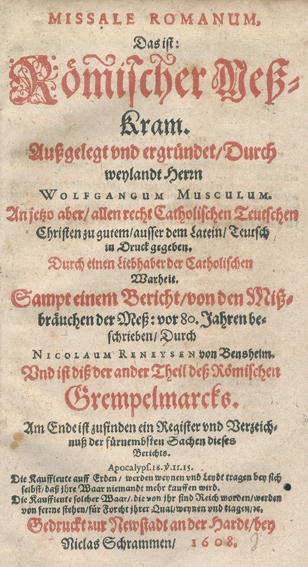 MISSALE ROMANUM,
Das ist:
Römischer Meß-
Kram.
Außgelegt vnd ergründet/ Durch
weylandt Herrn
WOLFGANGUM MUSCULUM.
An jetzo aber/ allen recht Catholischen Teutschen
Christen zu gutem/ ausser dem Latein/ Teutsch
in Druck gegeben.
Durch einen Liebhaber der Catholischen
Warheit.
Sampt einem Bericht/ von den Miß-
bräuchen der Meß: vor 80. Jahren be-
schrieben/ Durch
NICOLAUM RENEYSEN von Bensheim.
Und ist diß der ander Theil deß Römischen
Grempelmarcks.
Am Ende ist zufinden ein Register vnd Verzeich-
nuß der fürnembsten Sachen dieses
Berichts.
Apocalyps. 18. v. 11. 15.
Die Kauffleute auff Erden/ werden weynen vnd Leydt tragen bey sich
selbst/ daß jhre Waar niemandt mehr kauffen wird.
Die Kauffleute solcher Waar/ die von jhr sind Reich worden/ werden
von ferrne stehen/ für Forcht jhrer Qual/ weynen vnd klagen/ ꝛc.
Gedruckt zur Newstadt an der Hardt/ bey
Niclas Schrammen/ 1608.